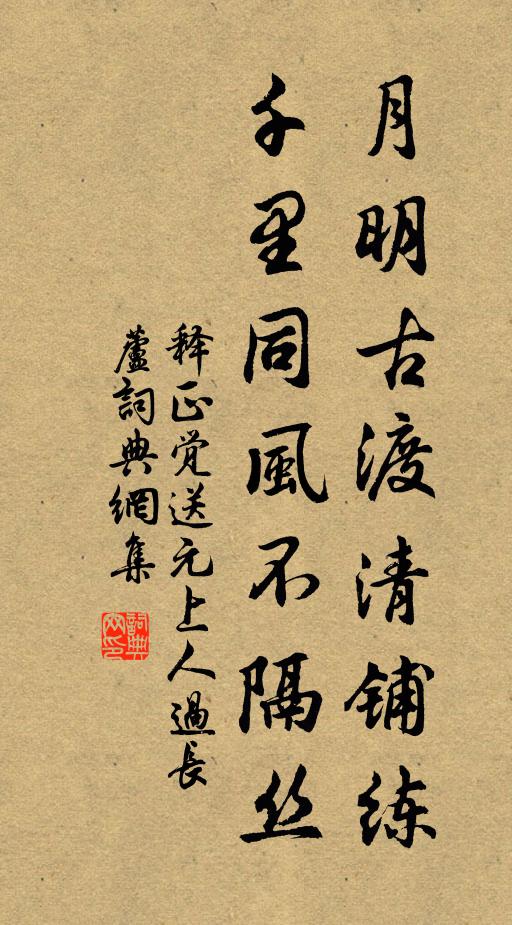 月明古渡清铺练
千里同風不隔丝
释正觉送元上人過長
蘆詞典網集
詞典網印